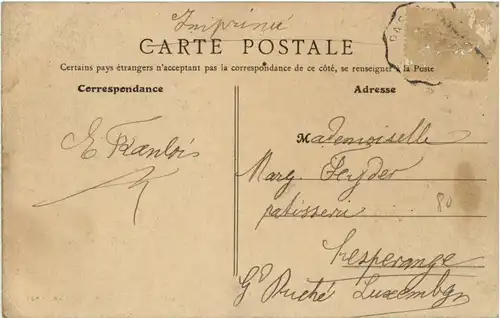 Imprimé
CARTE POSTALE
Certains pays étrangers n'acceptant pas la correspondance de ce côté, se renseigner à la Poste
Correspondance
Adresse
Mademoiselle
Marg.
patisserie
80
Hesperange
Gd Duché Luxembg